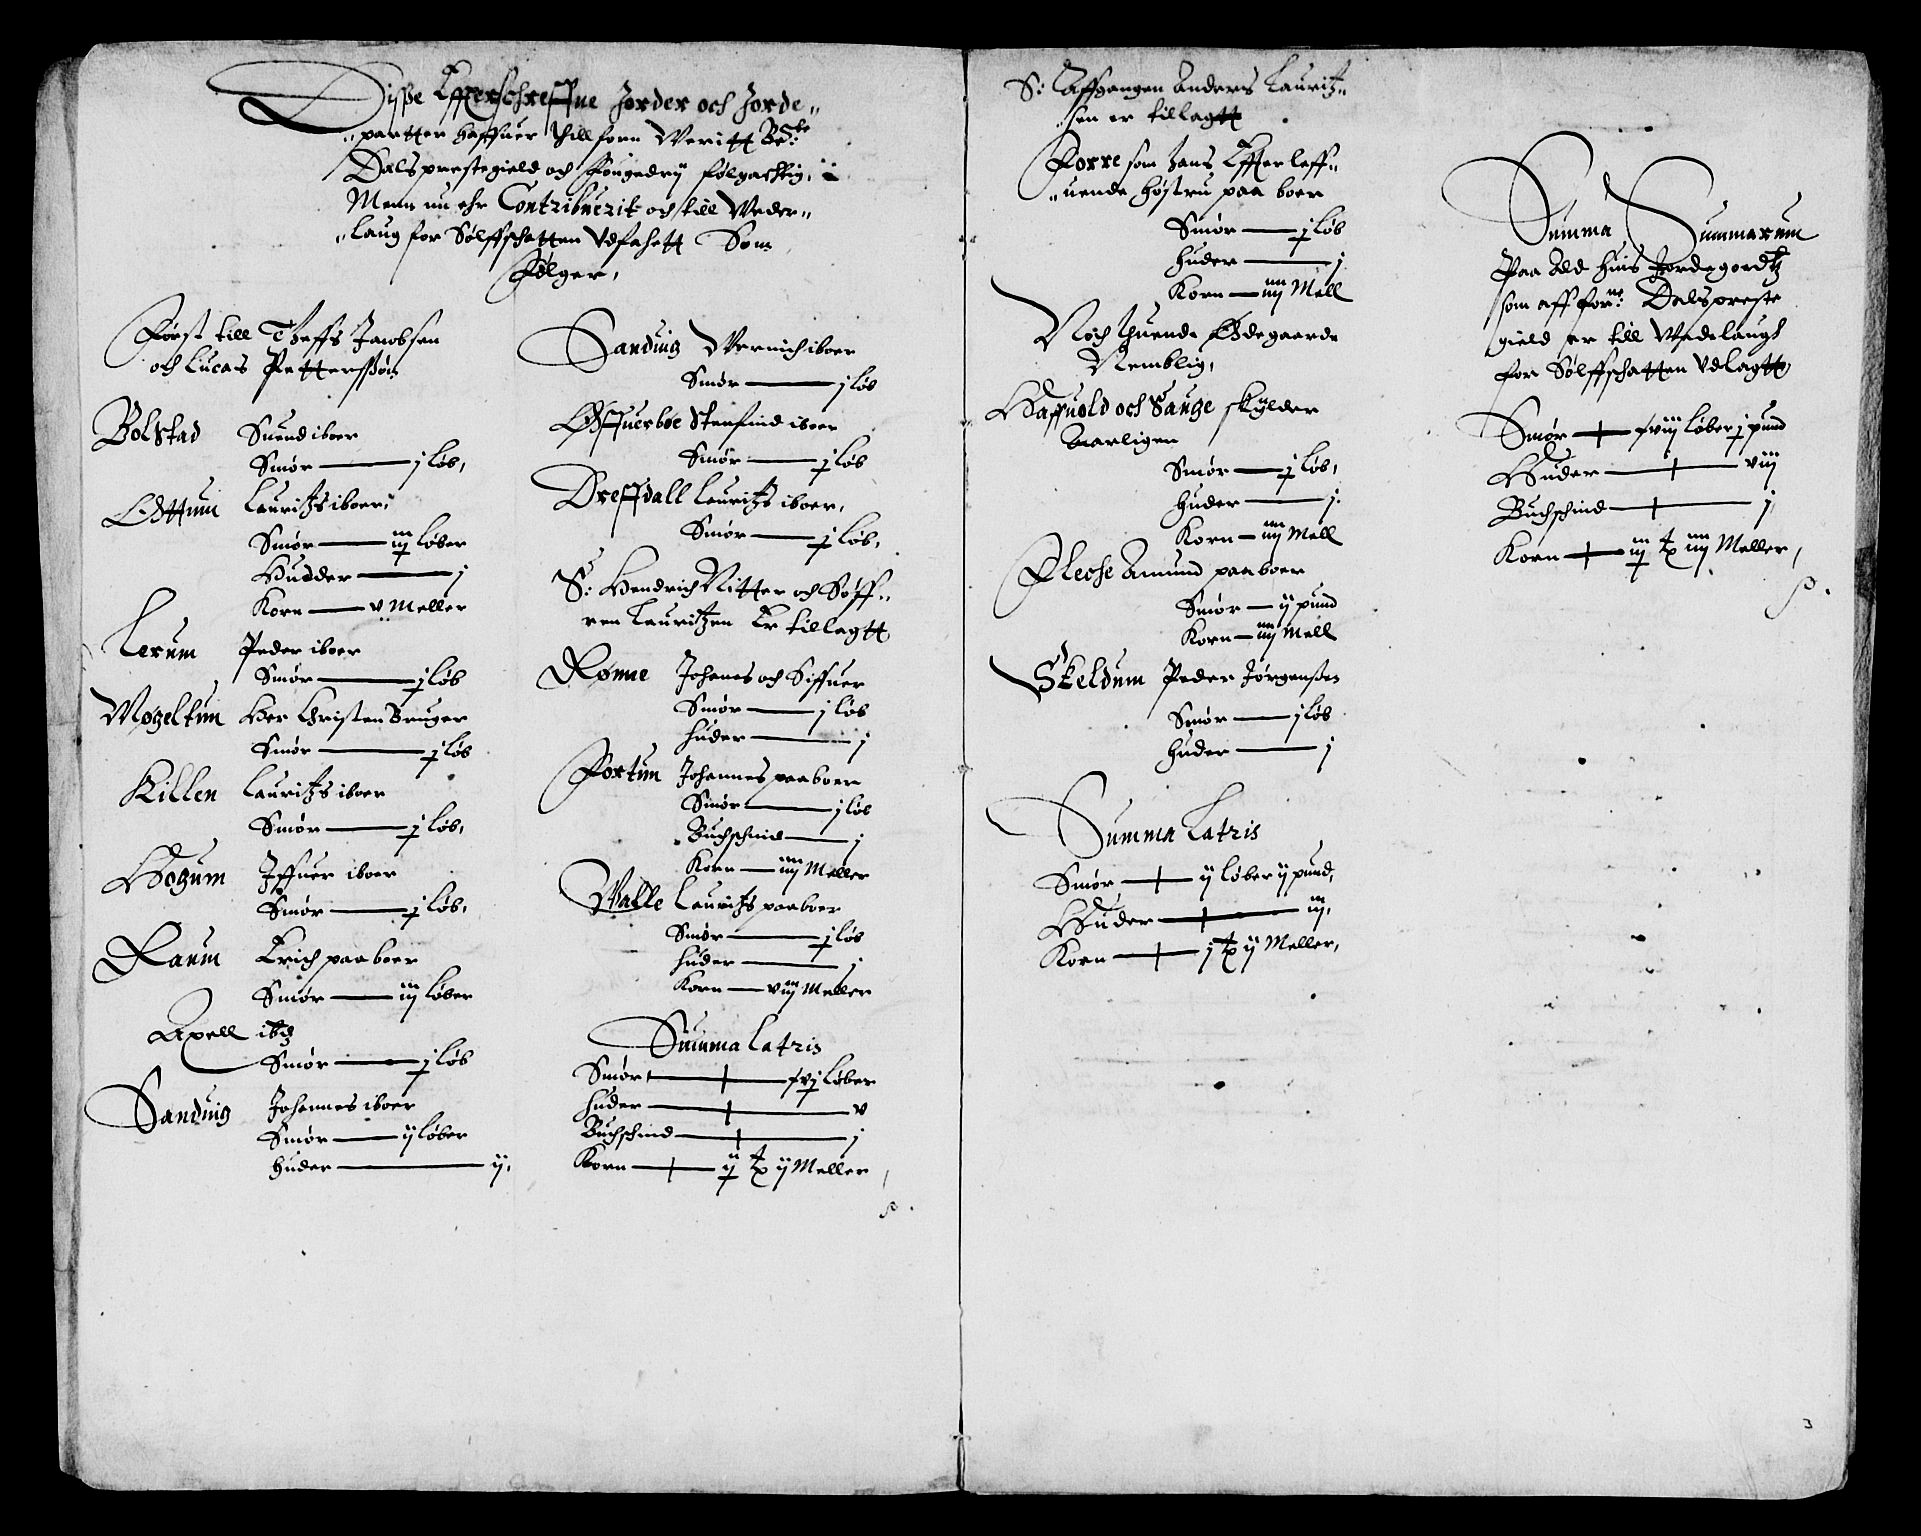 Disse Effterschreffne Jorder och Jorde„
„partter haffuer thill forn Weritt Be:te
Dals prestegield och fougedrij følgachtig,
Menn nu ehr Contribuerit och till Weder„
„laug for Sølffschatten Vdsatt Som
Følger,
Først till Steffs Jacobsen
och Lucas Petterssøn
Bolstad Suend iboer
Smør j løb,
Ottum Lauritzs iboer,
Smør iij løber
Hudder j
Korn v Meller
Lerum Peder iboer
Smør j løb
Møgeltun Her Christen Bruger
Smør j løb
Killen Lauritzs iboer
Smør j løb,
Hogum Iffuer iboer
Smør j løb,
Raum Erich paaboer
Smør iij løber
Axell ibd
Smør j løb
Sanduig Johannes iboer
Smør ij løber
huder ij,
Sanduig Wernich iboer
Smør j løb
Øffuerboe Stenfind iboer
Smør j løb
Dreffdall Lauritzs iboer,
Smør j løb,
S: Hendrich Ritter och Søff„
ren Lauritzen Er tillagtt
Rønne Johanes och Siffuer
Smør j løb
huder j
Fortun Johannes paaboer
Smør j løb
Buchschind j
Korn iiij Meller
Walle Lauritzs paaboer
Smør j løb
huder j
Korn viij Meller
Summa Latris
Smør xvj løber
huder v
Buchschind j
Korn ij ij Meller
S: Affgangen Anders Lauritz„
„sen er tillagtt
Forre som Jans Effterleff„
„uende høstru paa boer
Smør j løb
huder j
Korn iiij Mell
Noch thuende Ødegaarde
Nemblig,
Haffuold och Sauge skylder
Aarligen
Smør j løb,
huder j
Korn iiij Mell
Flecke Amund paaboer
Smør ij pund
Korn iiij Mell
Skeldum Peder Jørgensen
Smør j løb
huder j
Summa Latris
Smør ij løber ij pund,
Huder iij,
Korn j ij Meller,
Summa Summarum
Paa Ald huis Jordegoedtz
som aff forne: Dals preste
gield er till Wedelaugh
for Sølffschatten Vdlagtt,
Smør xviij løber j pund
Huder viij
Buchschind j
Korn iij iiij Meller,
3